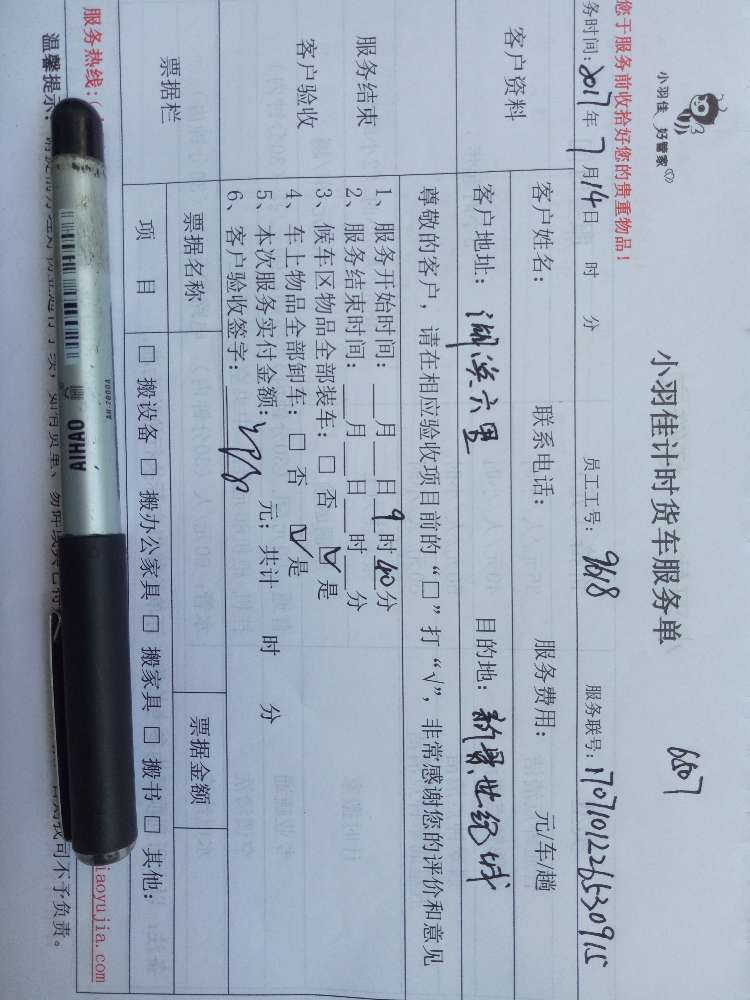 小羽佳 好管家
小羽佳计时货车服务单
6507
您于服务前收拾好您的贵重物品！
务时间：2017年7月14日 时 分 员工工号：9618 服务联号：1707101226530915
客户资料
客户姓名： 联系电话： 服务费用： 元/车/趟
客户地址： 湖滨六里 目的地： 新景世纪城
尊敬的客户，请在相应验收项目前的“□”打“√”，非常感谢您的评价和意见
服务结束
客户验收
1、服务开始时间：__月__日9时40分
2、服务结束时间：__月__日__时__分
3、候车区物品全部装车：□ 否 ☑ 是
4、车上物品全部卸车：□ 否 ☑ 是
5、本次服务实付金额： 元；共计 时 分
6、客户验收签字：
票据栏
票据名称 票据金额
项 目 □ 搬设备 □ 搬办公家具 □ 搬家具 □ 搬书 □ 其他：
服务热线：( iaoyujia.com
温馨提示： 司不予负责。
AIHAO